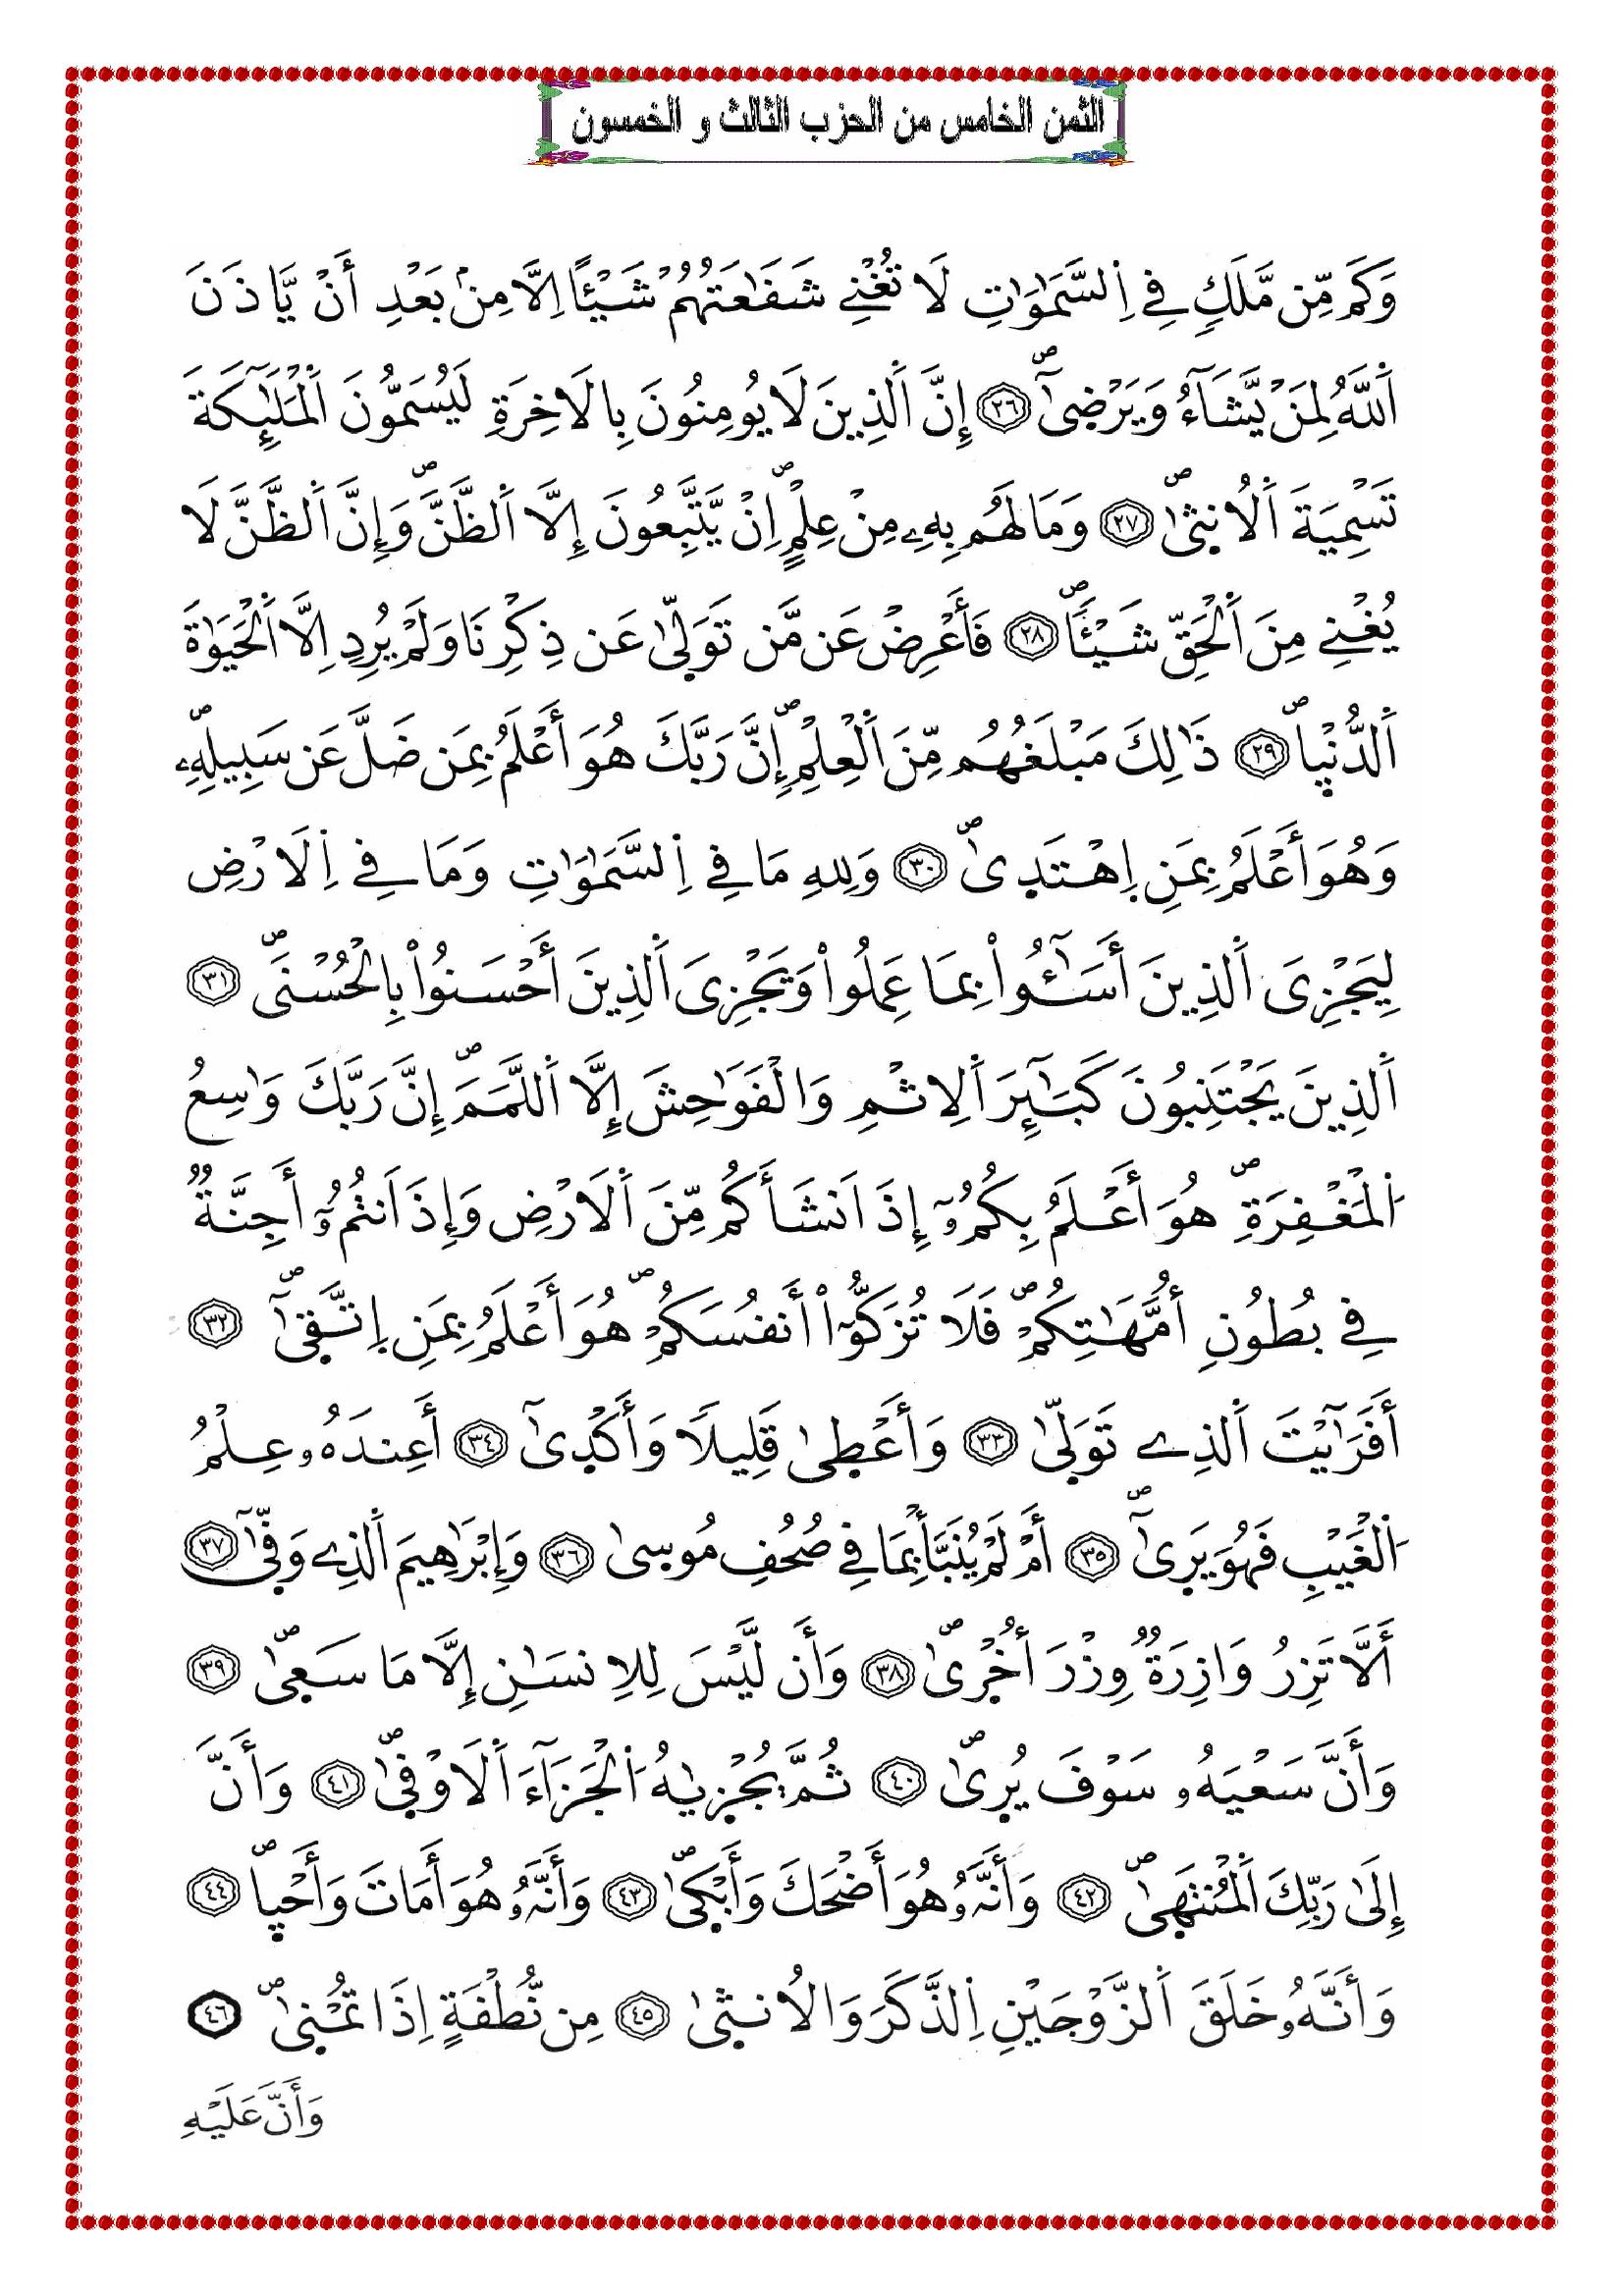 الثمن الخامس من الحزب الثالث و الخمسون
وَكَم مِّن مَّلَكٍ فِے اِ۬لسَّمَٰوَٰتِ لَا تُغْنِے شَفَٰعَتُهُمْ شَيْـًٔا اِلَّا مِنۢ بَعْدِ أَنْ يَّاذَنَ
اَ۬للَّهُ لِمَنْ يَّشَآءُ وَيَرْض۪ىٰٓۖ ٢٦ إِنَّ اَ۬لذِينَ لَا يُومِنُونَ بِالَاخِرَةِ لَيُسَمُّونَ اَ۬لْمَلَٰٓئِكَةَ
تَسْمِيَةَ اَ۬لُانث۪ىٰۖ ٢٧ وَمَا لَهُم بِهِۦ مِنْ عِلْمٍۖ اِنْ يَّتَّبِعُونَ إِلَّا اَ۬لظَّنَّۖ وَإِنَّ اَ۬لظَّنَّ لَا
يُغْنِے مِنَ اَ۬لْحَقِّ شَيْـًٔاۖ ٢٨ فَأَعْرِضْ عَن مَّن تَوَلّ۪ىٰ عَن ذِكْرِنَا وَلَمْ يُرِدِ اِلَّا اَ۬لْحَيَوٰةَ
اَ۬لدُّنْي۪اۖ ٢٩ ذَٰلِكَ مَبْلَغُهُم مِّنَ اَ۬لْعِلْمِۖ إِنَّ رَبَّكَ هُوَ أَعْلَمُ بِمَن ضَلَّ عَن سَبِيلِهِۦ
وَهُوَ أَعْلَمُ بِمَنِ اِ۪هْتَد۪ىٰۖ ٣٠ وَلِلهِ مَا فِے اِ۬لسَّمَٰوَٰتِ وَمَا فِے اِ۬لَارْضِ
لِيَجْزِىَ اَ۬لذِينَ أَسَٰٓـُٔواْ بِمَا عَمِلُواْ وَيَجْزِىَ اَ۬لذِينَ أَحْسَنُواْ بِالْحُسْنَىۖ ٣١
اَ۬لذِينَ يَجْتَنِبُونَ كَبَٰٓئِرَ اَ۬لِاثْمِ وَالْفَوَٰحِشَ إِلَّا اَ۬للَّمَمَۖ إِنَّ رَبَّكَ وَٰسِعُ
اُ۬لْمَغْفِرَةِۖ هُوَ أَعْلَمُ بِكُمُۥٓ إِذَ اَنشَأَكُم مِّنَ اَ۬لَارْضِ وَإِذَ اَنتُمُۥٓ أَجِنَّةٌ
فِے بُطُونِ أُمَّهَٰتِكُمْۖ فَلَا تُزَكُّوٓاْ أَنفُسَكُمْۖ هُوَ أَعْلَمُ بِمَنِ اِ۪تَّق۪ىٰٓۖ ٣٢
أَفَرَٰٓيْتَ اَ۬لذِے تَوَلّ۪ىٰ ٣٣ وَأَعْط۪ىٰ قَلِيلًا وَأَكْد۪ىٰٓ ٣٤ أَعِندَهُۥ عِلْمُ
اُ۬لْغَيْبِ فَهُوَ يَر۪ىٰٓۖ ٣٥ أَمْ لَمْ يُنَبَّأْ بِمَا فِے صُحُفِ مُوس۪ىٰ ٣٦ وَإِبْرَٰهِيمَ اَ۬لذِے وَفّ۪ىٰٓ ٣٧
أَلَّا تَزِرُ وَازِرَةٌ وِزْرَ أُخْر۪ىٰۖ ٣٨ وَأَن لَّيْسَ لِلِانسَٰنِ إِلَّا مَا سَع۪ىٰۖ ٣٩
وَأَنَّ سَعْيَهُۥ سَوْفَ يُر۪ىٰۖ ٤٠ ثُمَّ يُجْز۪ىٰهُ اُ۬لْجَزَآءَ اَ۬لَاوْف۪ىٰۖ ٤١ وَأَنَّ
إِلَىٰ رَبِّكَ اَ۬لْمُنتَه۪ىٰۖ ٤٢ وَأَنَّهُۥ هُوَ أَضْحَكَ وَأَبْك۪ىٰۖ ٤٣ وَأَنَّهُۥ هُوَ أَمَاتَ وَأَحْي۪اۖ ٤٤
وَأَنَّهُۥ خَلَقَ اَ۬لزَّوْجَيْنِ اِ۬لذَّكَرَ وَالُانث۪ىٰ ٤٥ مِن نُّطْفَةٍ اِذَا تُمْن۪ىٰۖ ٤٦
وَأَنَّ عَلَيْهِ